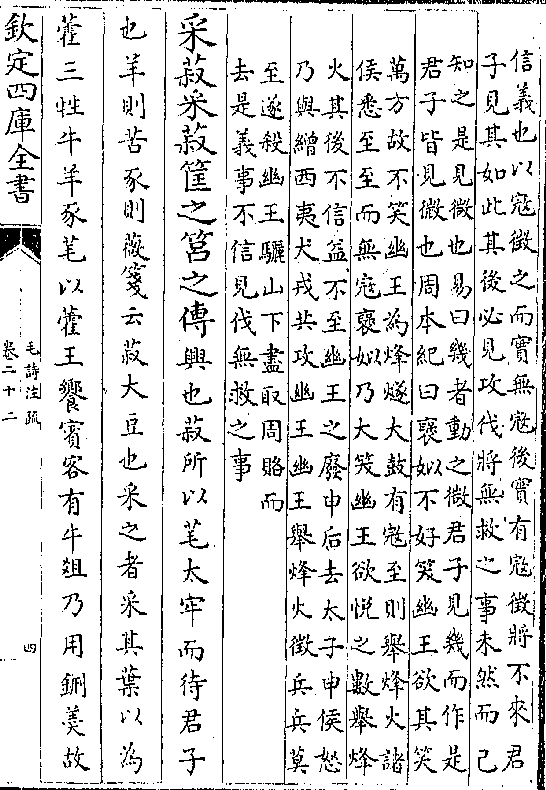 信義也以寇徵之而實無寇後實有寇徵將不來君
子見其如此其後必見攻伐將無救之事未然而已
知之是見微也易曰幾者動之微君子見幾而作是
君子皆見微也周本紀曰襃姒不好笑幽王欲其笑
萬方故不笑幽王為烽燧大鼓有寇至則舉烽火諸
侯悉至至而無寇襃姒乃大笑幽王欲悅之數舉烽
火其後不信益不至幽王之廢申后去太子申侯怒
乃與繒西夷犬戎共攻幽王幽王舉烽火徵兵兵莫
至遂殺幽王驪山下盡取周賂而
去是義事不信見伐無救之事
采菽采菽筐之筥之傳興也菽所以芼太牢而待君子
也羊則苦豕則薇箋云菽大豆也采之者采其葉以為
藿三牲牛羊豕芼以藿王饗賓客有牛俎乃用鉶羹故
欽定四庫全書
毛詩注疏
卷二十二
四